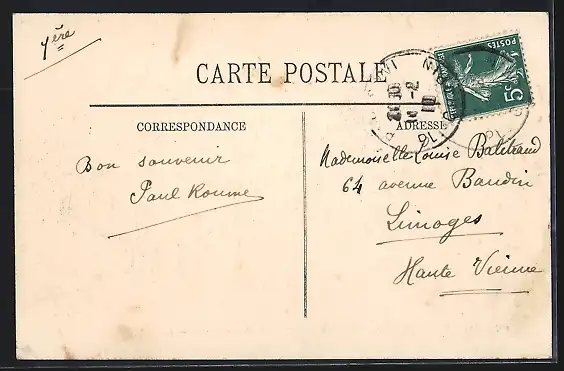 1ère
CARTE POSTALE
CORRESPONDANCE
ADRESSE
Bon souvenir
Paul Roume
Mademoiselle Louise
64 avenue Baudin
Limoges
Haute Vienne
POSTES
5